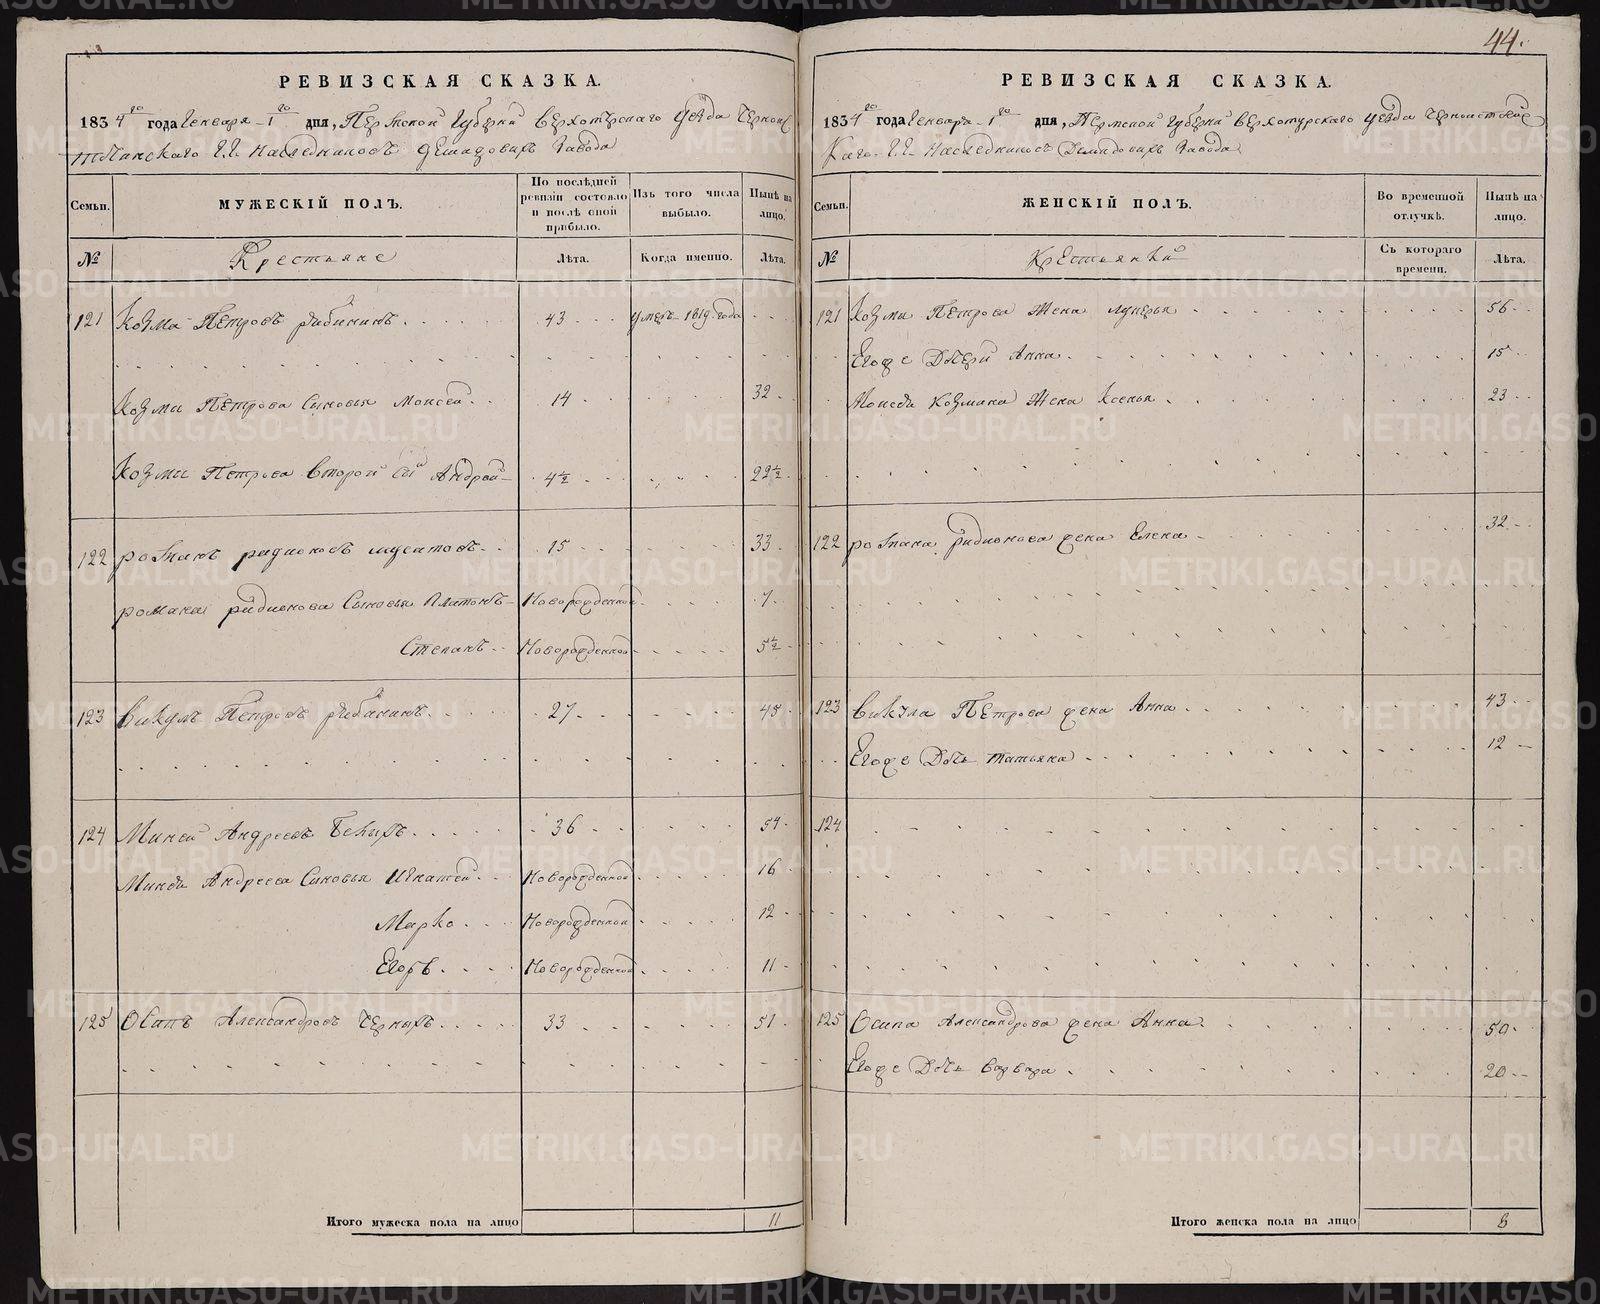 44.
РЕВИЗСКАЯ СКАЗКА.
1834го года Генваря 1го дня, Пермской Губернии Верхотурскаго Уезда Черноис
точинскаго Г.Г. Наследниковъ Демидовыхъ Завода
Семьи.
МУЖЕСКІЙ ПОЛЪ.
По послѣдней ревизіи состояло и послѣ оной прибыло.
Изъ того числа выбыло.
Нынѣ на лицо.
№
Крестьяне
Лѣта.
Когда именно.
Лѣта.
121 Козма Петровъ Рябининъ 43 умеръ 1819 года
Козмы Петрова Сыновья Моисей 14 32
Козмы Петрова второй сы Андрей 4½ 22½
122 романъ радионовъ мусатовъ 15 33
романа радионова Сыновья Платонъ Новорожденной 7
Степанъ Новорожденной 5½
123 Викулъ Петровъ рябининъ 27 45
124 Миней Андреевъ Белыхъ 36 54
Минея Андреева Сыновья Игнатей Новорожденной 16
Марко Новорожденной 12
Егоръ Новорожденной 11
125 Осипъ Александровъ Черныхъ 33 51
Итого мужеска пола на лицо 11
РЕВИЗСКАЯ СКАЗКА.
1834го года Генваря 1го дня, Пермской Губернии Верхотурскаго уезда Черноисточинс
каго Г.Г. Наследниковъ Демидовыхъ Завода
Семьи.
ЖЕНСКІЙ ПОЛЪ.
Во временной отлучкѣ.
Нынѣ на лицо.
№
Крестьянки
Съ котораго времени.
Лѣта.
121 Козмы Петрова Жена лукерья 56
Егоже Дочери Анна 15
Моисея Козмина Жена Ксенья 23
122 романа радионова жена Елена 32
123 Викула Петрова жена Анна 43
Егоже Дочь татьяна 12
124
125 Осипа Александрова жена Анна 50
Егоже Дочь варвара 20
Итого женска пола на лицо 8
METRIKI.GASO-URAL.RU